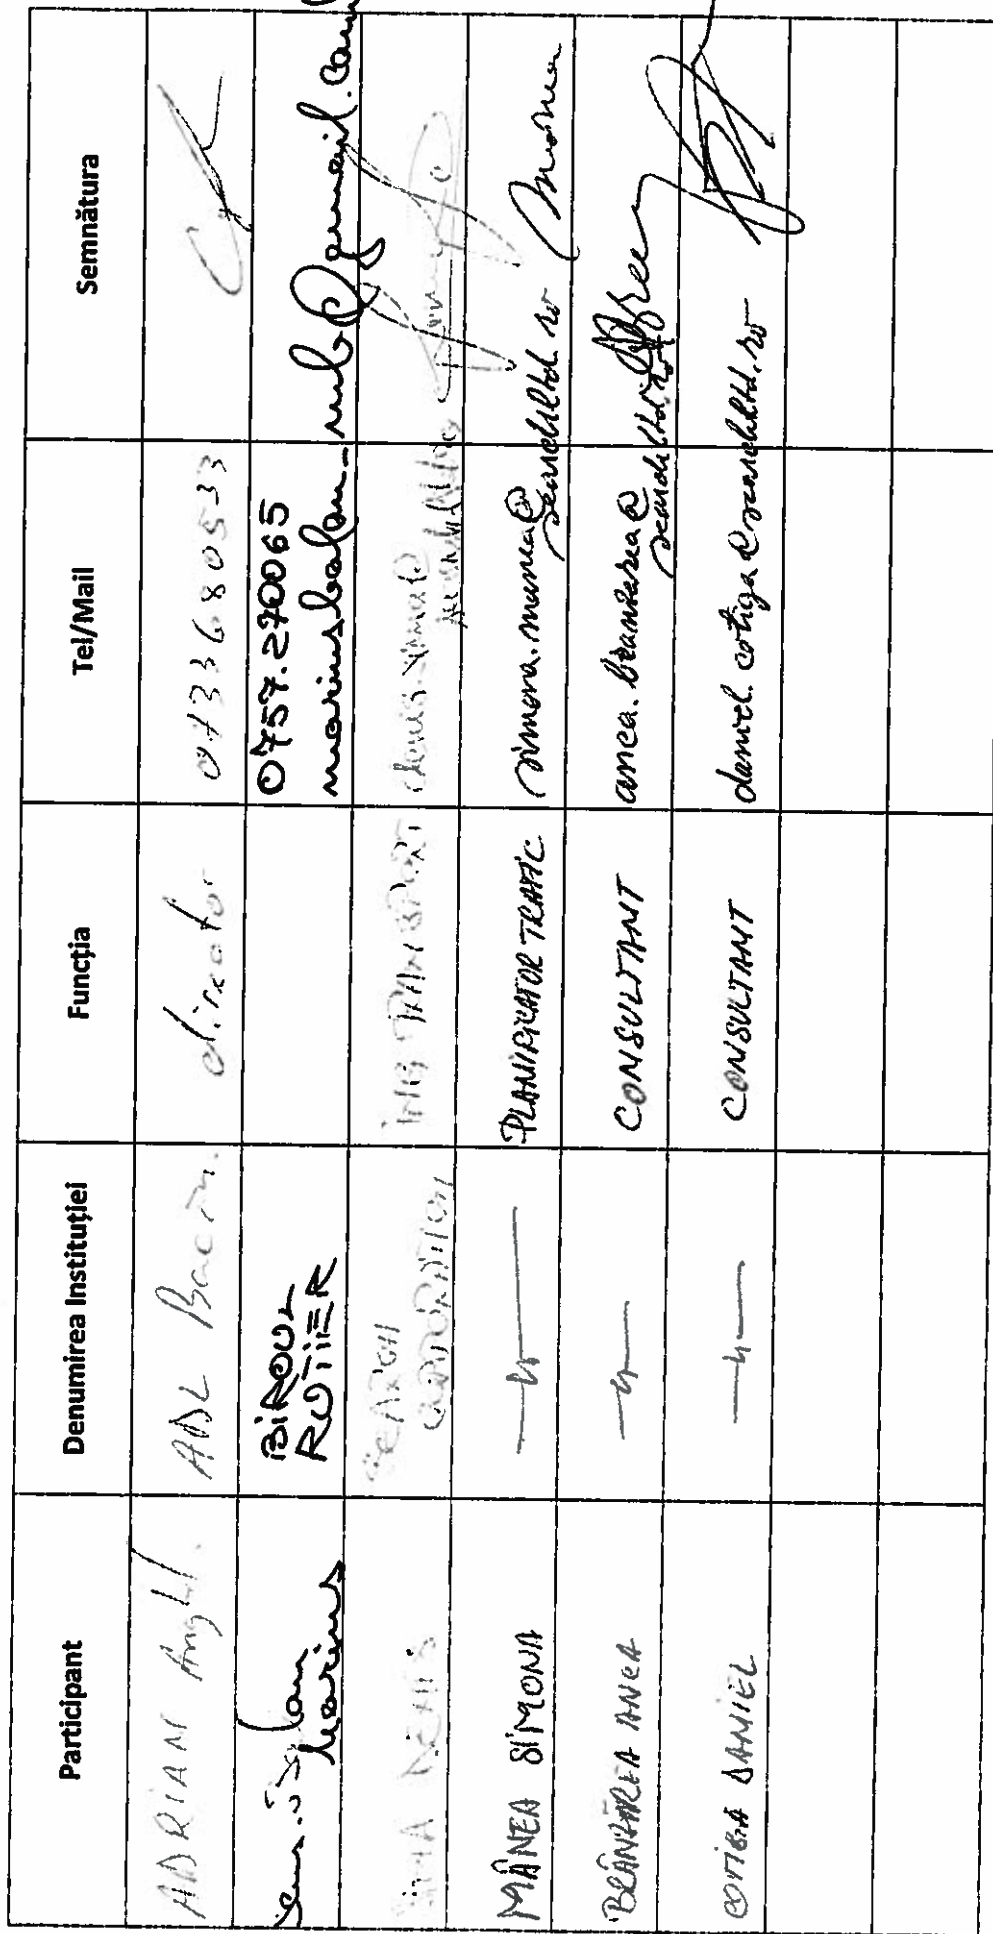 Participant Denumirea Instituției Funcția Tel/Mail Semnătura
ADRIAN Anghel. ADL Bacău. director 0733680533
Marius BIROUL ROTIER 0757.270065
marinsbalan-mb@gmail.com
DENIS SEARCH CORPORATION ING TRANSPORT
MÂNEA SIMONA —"— PLANIFICATOR TRAFIC simona.manea@searchltd.ro
BRÂNZAREA ANCA —"— CONSULTANT anca.branzarea@searchltd.ro
COTIGA DANIEL —"— CONSULTANT daniel.cotiga@searchltd.ro